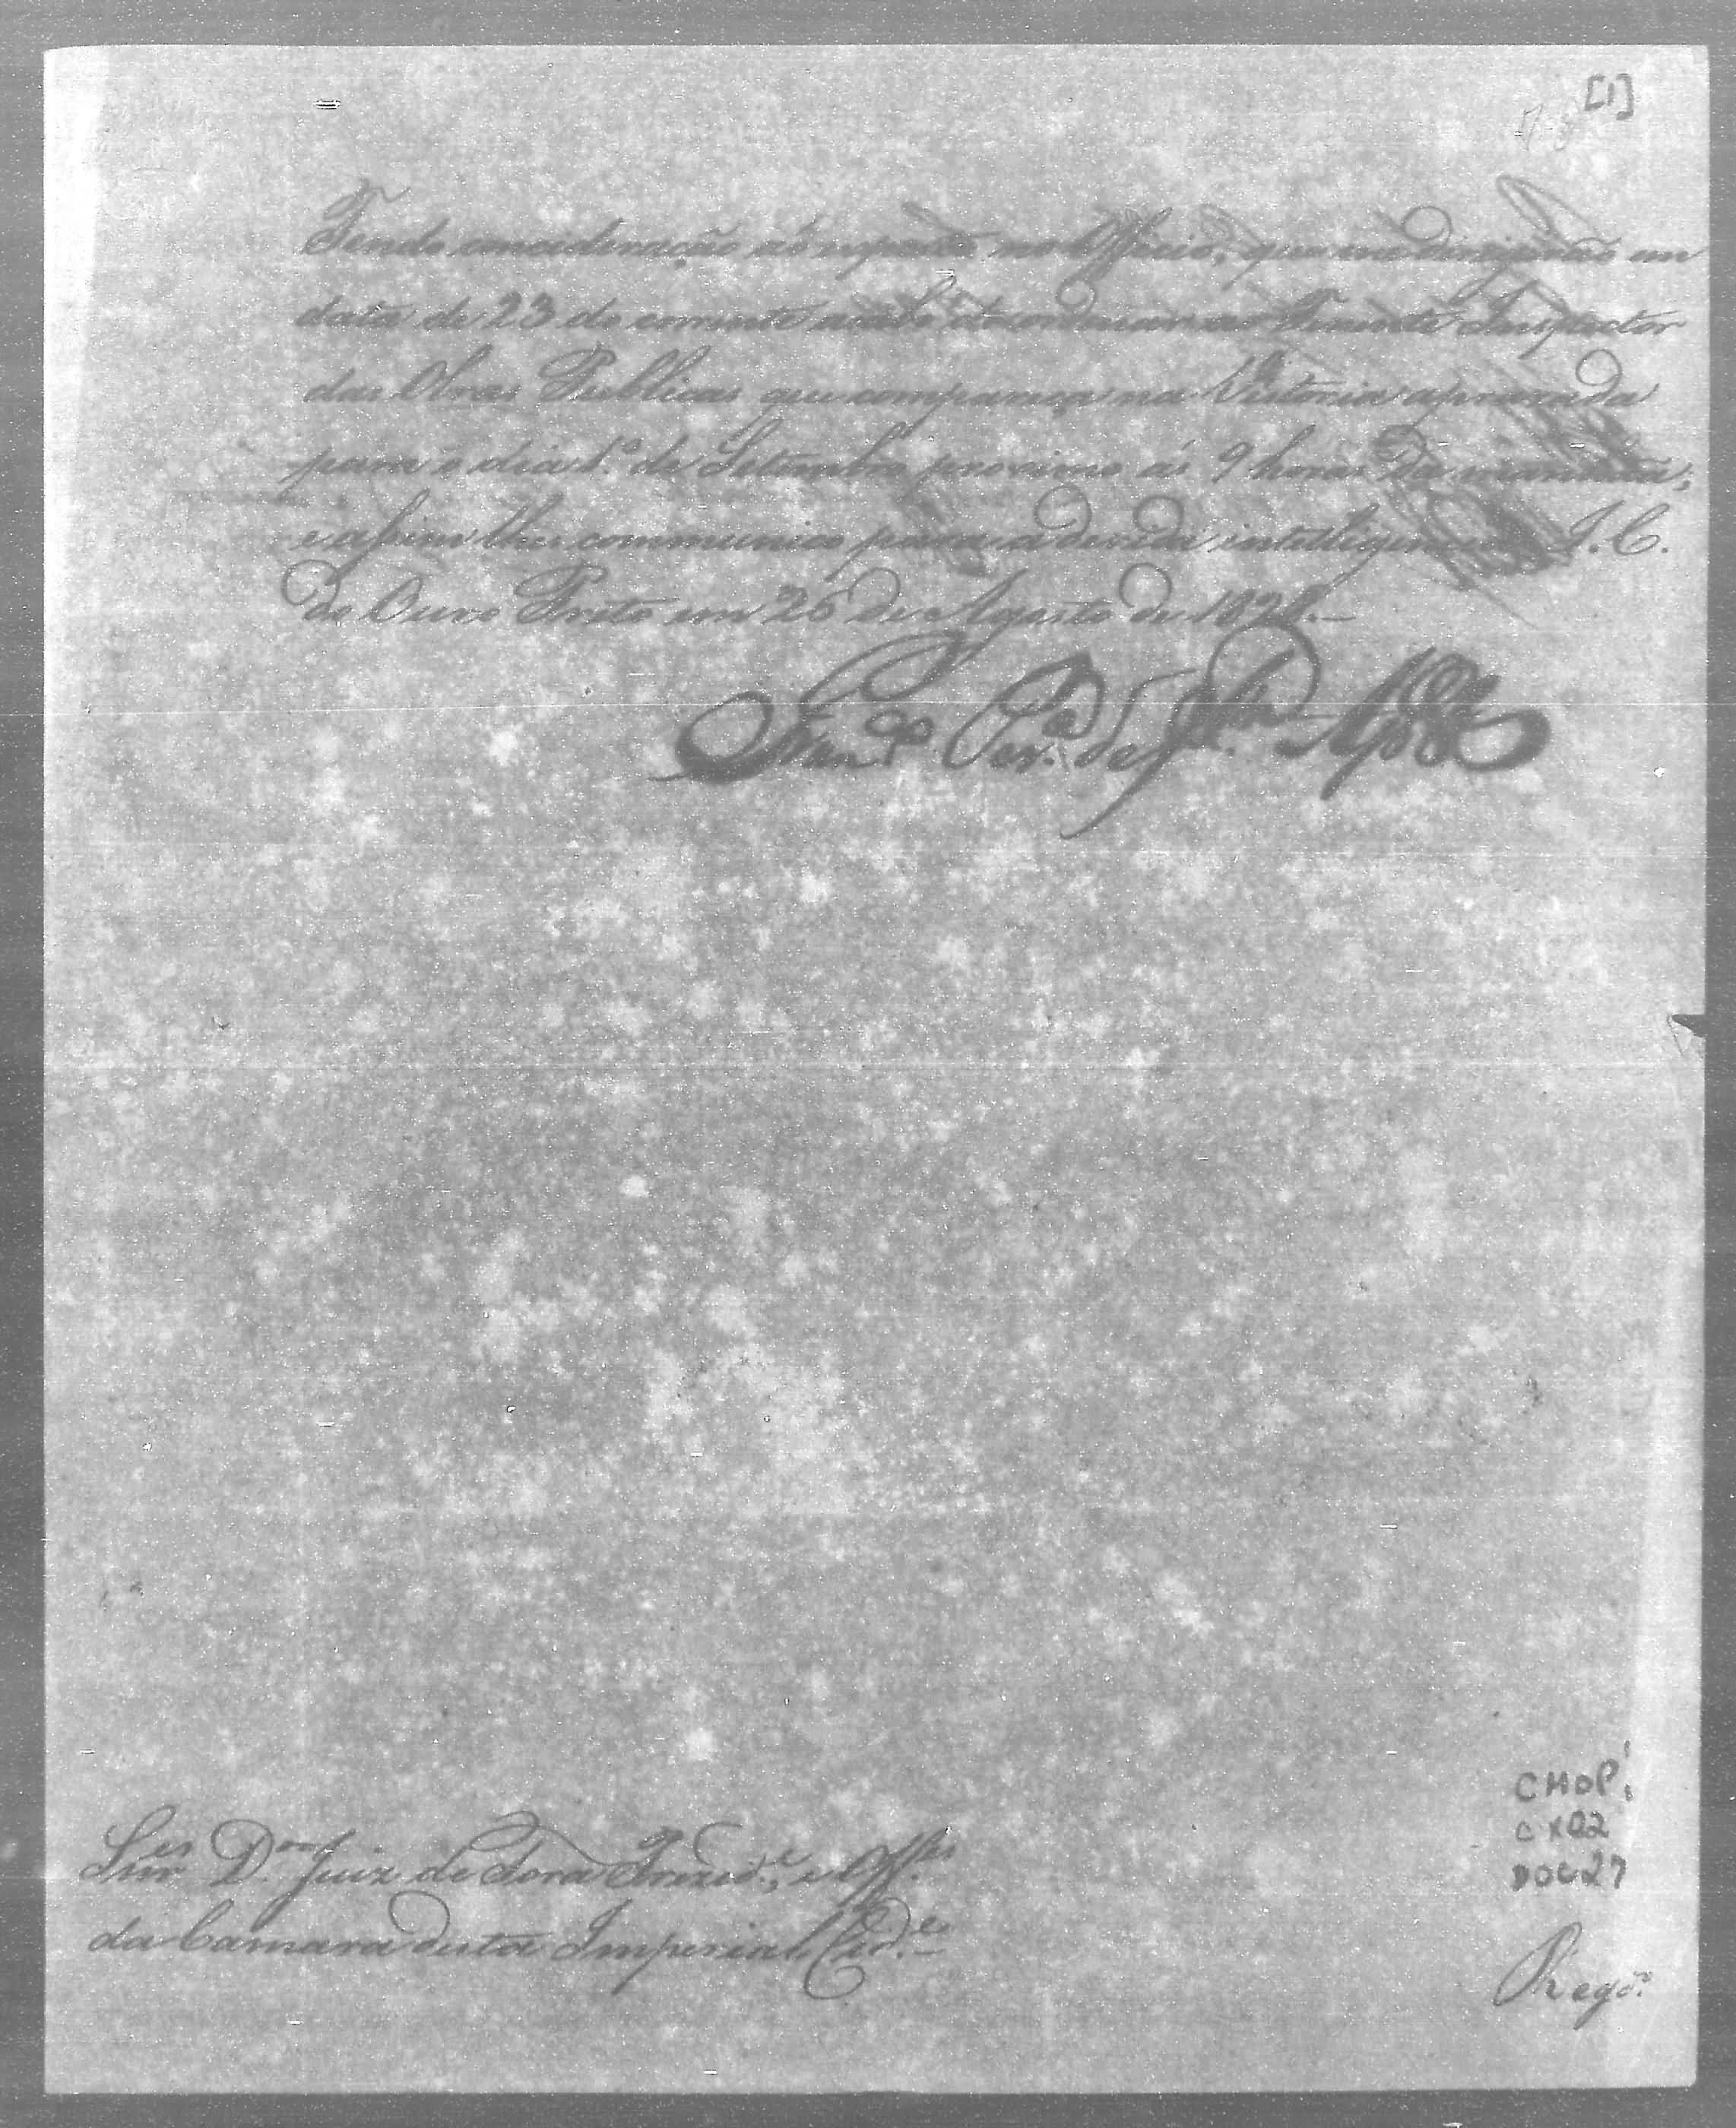 [1]
Tendo consideração ao exposto no Officio, que me dirigirão em
data de 23 do corrente acabo de ordenar ao Tenente Inspector
das Obras Publicas que compareça na Vistoria aprazada
para o dia 1.º de Setembro proximo ás 9 horas da manhãa;
e assim lhes communico para a devida intelligencia I. C.
do Ouro Preto em 26 de Agosto de
Fran.co Per.a de S.ta Apol.a
Snr.es D.or Juiz de Fora Prezid.e, e Off.es
da Camara desta Imperial Cid.e
CMOP
CX02
DOC27
Reg.da